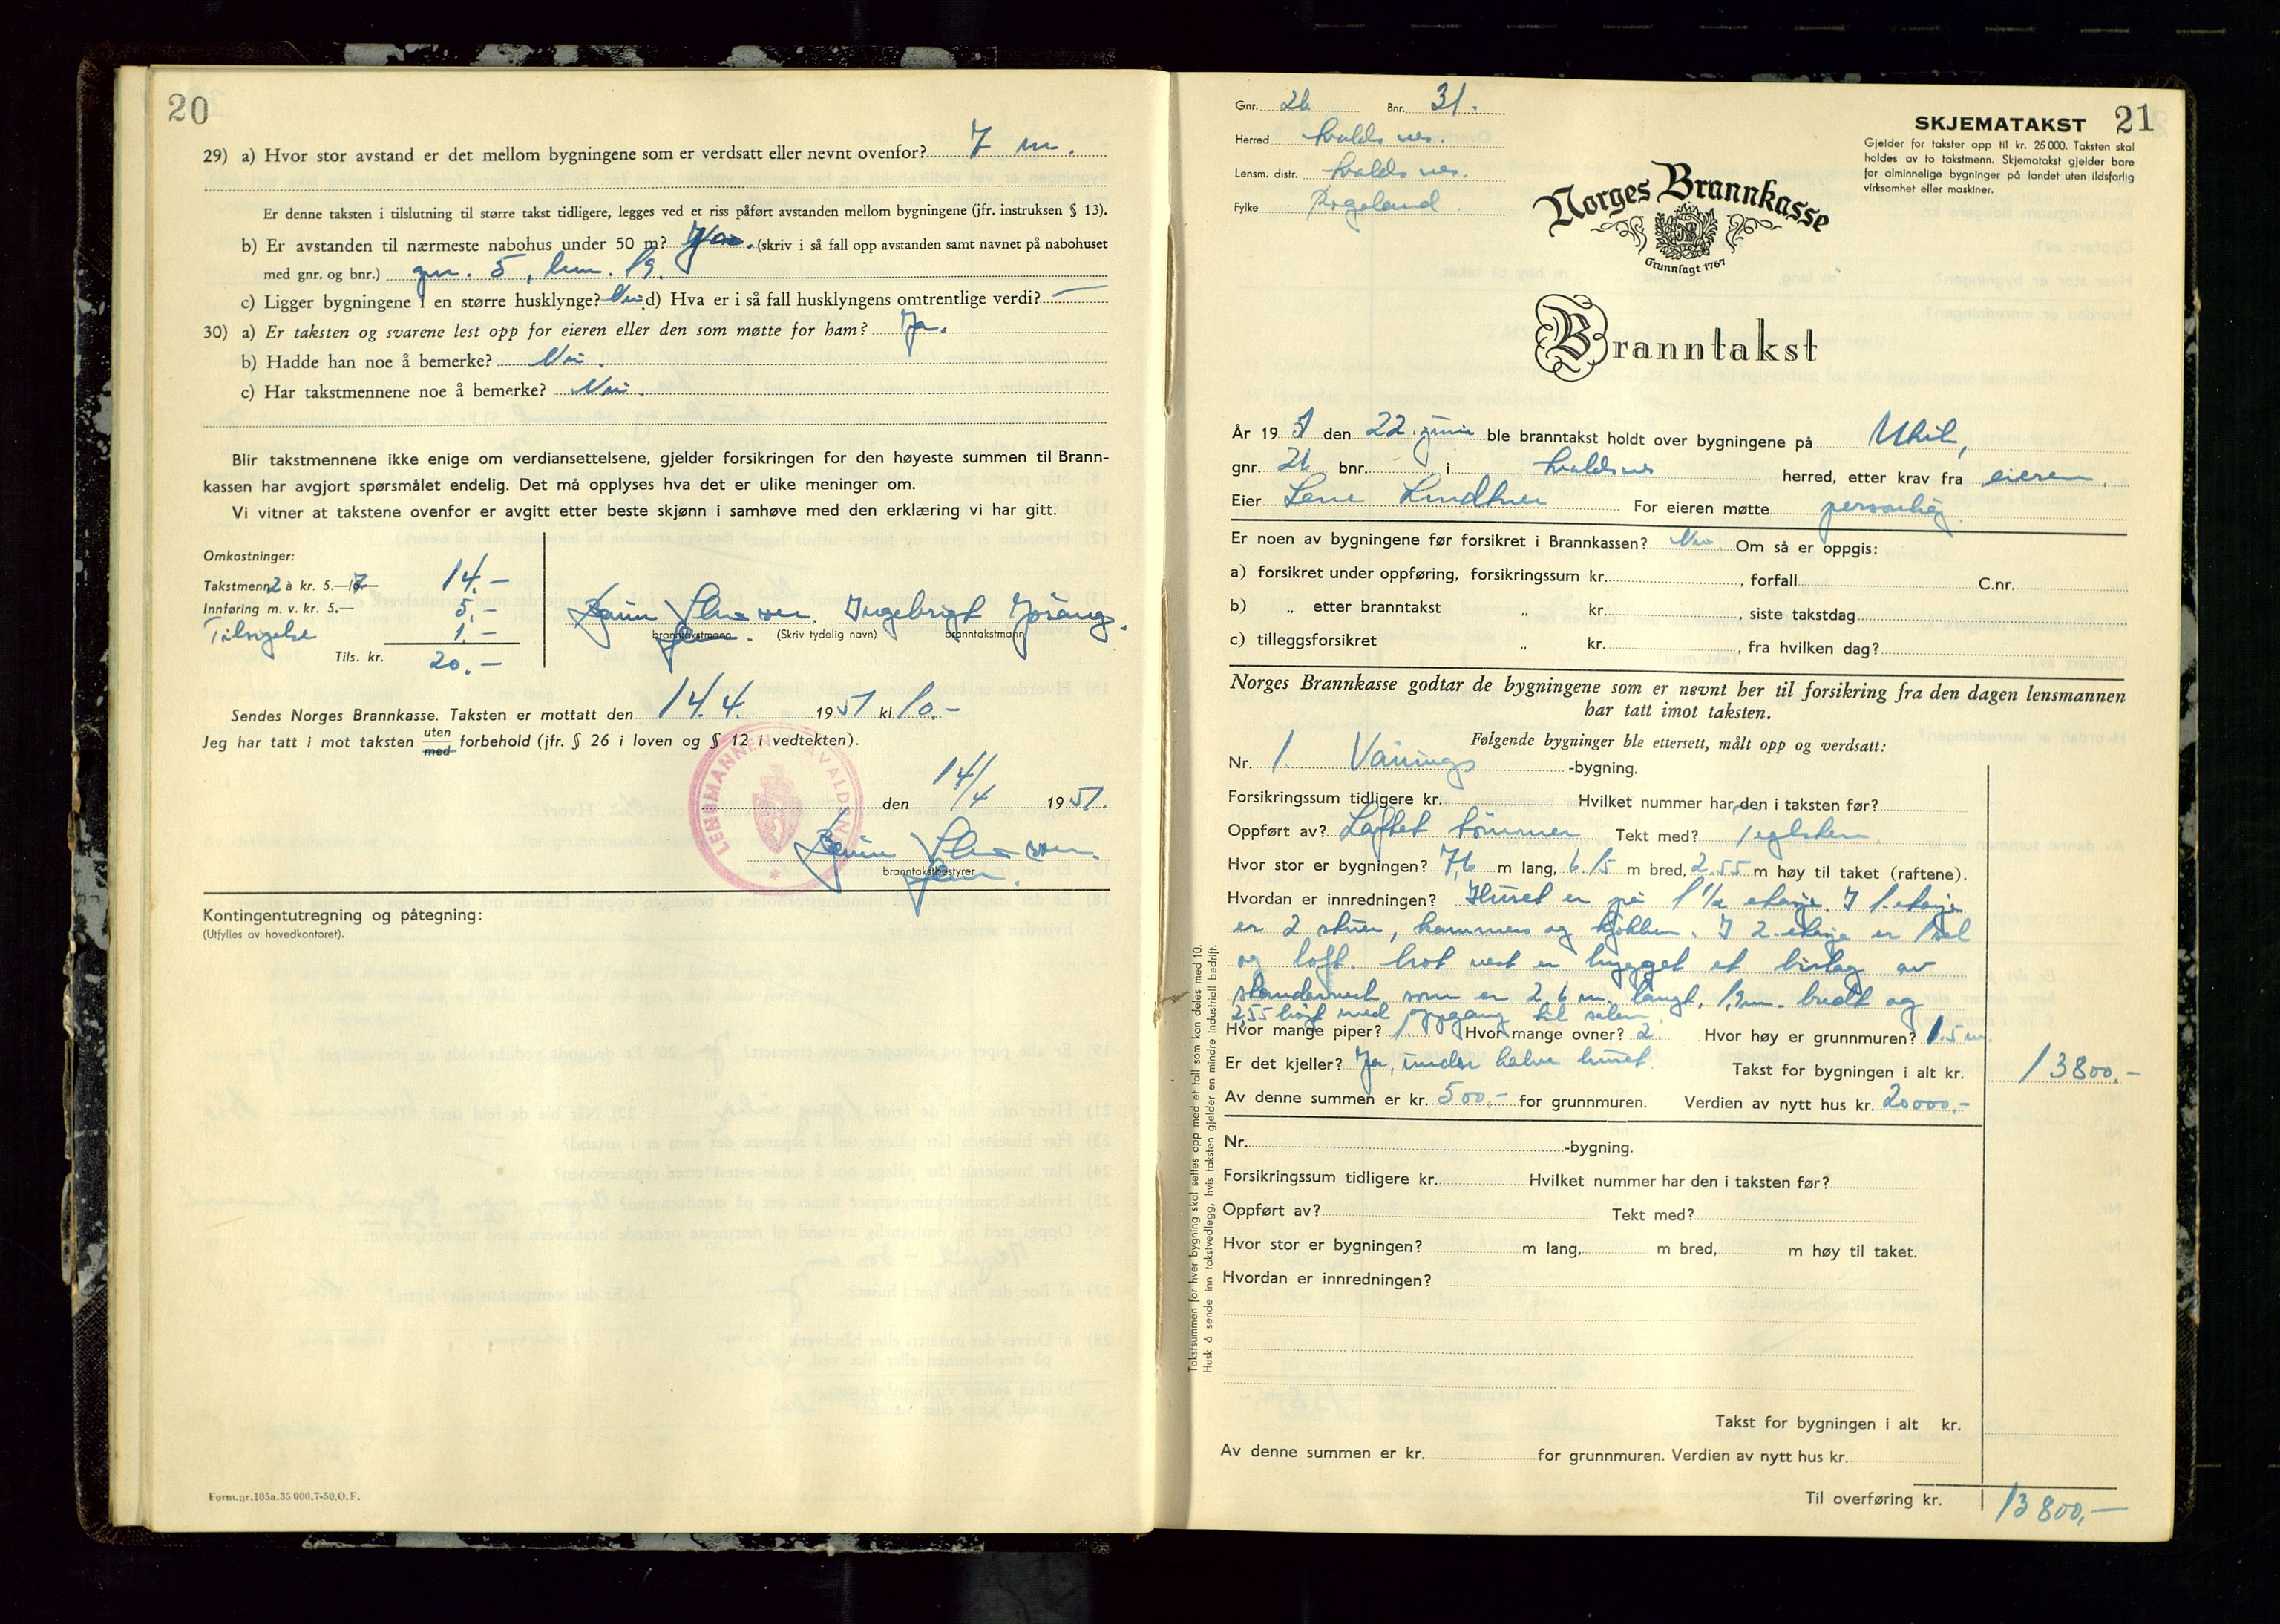 20
29) a) Hvor stor avstand er det mellom bygningene som er verdsatt eller nevnt ovenfor? 7 m.
Er denne taksten i tilslutning til større takst tidligere, legges ved et riss påført avstanden mellom bygningene (jfr. instruksen § 13).
b) Er avstanden til nærmeste nabohus under 50 m? (skriv i så fall opp avstanden samt navnet på nabohuset
med gnr. og bnr.) gnr. 5, bnr. 19.
c) Ligger bygningene i en større husklynge? Nei d) Hva er i så fall husklyngens omtrentlige verdi? —
30) a) Er taksten og svarene lest opp for eieren eller den som møtte for ham? Ja.
b) Hadde han noe å bemerke? Nei.
c) Har takstmennene noe å bemerke? Nei.
Blir takstmennene ikke enige om verdiansettelsene, gjelder forsikringen for den høyeste summen til Brann-
kassen har avgjort spørsmålet endelig. Det må opplyses hva det er ulike meninger om.
Vi vitner at takstene ovenfor er avgitt etter beste skjønn i samhøve med den erklæring vi har gitt.
Omkostninger:
Takstmenn 2 à kr. 5.—/7 14.-
Innføring m. v. kr. 5.— 5.-
Tilsigelse 1.-
Tils. kr. 20.-
Ingebrigt
branntakstmann (Skriv tydelig navn) branntakstmann
Sendes Norges Brannkasse. Taksten er mottatt den 14.4. 1951 kl. 10.-
Jeg har tatt i mot taksten uten med forbehold (jfr. § 26 i loven og § 12 i vedtekten).
LENSMANNEN I AVALDSNES
den 14/4 1951.
branntakstbestyrer
Kontingentutregning og påtegning:
(Utfylles av hovedkontoret).
Form.nr.105a.35 000.7-50.O.F.
21
Gnr. 26 Bnr. 31.
Herred Avaldsnes.
Lensm. distr. Avaldsnes.
Fylke Rogaland.
SKJEMATAKST
Gjelder for takster opp til kr. 25 000. Taksten skal
holdes av to takstmenn. Skjematakst gjelder bare
for alminnelige bygninger på landet uten ildsfarlig
virksomhet eller maskiner.
Norges Brannkasse
Grunnlagt 1767
Branntakst
År 1951 den 22. juni ble branntakst holdt over bygningene på Uhil,
gnr. 26 bnr. i Avaldsnes herred, etter krav fra eieren.
Eier Lene Lindtner For eieren møtte personlig
Er noen av bygningene før forsikret i Brannkassen? Nei. Om så er oppgis:
a) forsikret under oppføring, forsikringssum kr. , forfall C.nr.
b) „ etter branntakst „ kr. , siste takstdag
c) tilleggsforsikret „ kr. , fra hvilken dag?
Norges Brannkasse godtar de bygningene som er nevnt her til forsikring fra den dagen lensmannen
har tatt imot taksten.
Følgende bygningene ble ettersett, målt opp og verdsatt:
Nr. 1. Vånings -bygning.
Forsikringssum tidligere kr. Hvilket nummer har den i taksten før?
Oppført av? Laftet tömmer Tekt med? Teglsten.
Hvor stor er bygningen? 7,6 m lang, 6.15 m bred, 2.55 m høy til taket (raftene).
Hvordan er innredningen? Huset er på 1 1/2 etasje. I 1. etasje
er 2 stuer, kammers og kjökken. I 2. etasje er 1 sal
og loft. Mot vest er bygget et bislag av
standerverk som er 2.6 m. langt, 1,9 m. bredt og
2,55 høgt med oppgang til salen.
Hvor mange piper? 1 Hvor mange ovner? 2. Hvor høy er grunnmuren? 1.5 m.
Er det kjeller? Ja, under halve huset. Takst for bygningen i alt kr. 13800.-
Av denne summen er kr. 500.- for grunnmuren. Verdien av nytt hus kr. 20000.-
Nr. -bygning.
Forsikringssum tidligere kr. Hvilket nummer har den i taksten før?
Oppført av? Tekt med?
Hvor stor er bygningen? m lang, m bred, m høy til taket.
Hvordan er innredningen?
Takst for bygningen i alt kr.
Av denne summen er kr. for grunnmuren. Verdien av nytt hus kr.
Til overføring kr. 13800,-
Takstsummen for hver bygning skal settes opp med et tall som kan deles med 10.
Husk å sende inn takstvedlegg, hvis taksten gjelder en mindre industriell bedrift.